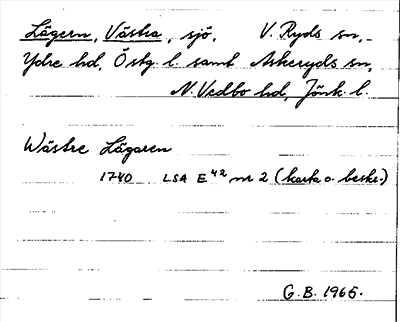 Lägern, Västra, sjö, V. Ryds sn,
Ydre hd, Östg. l. samt Askeryds sn,
N. Vedbo hd, Jönk. l.
Wästre Lägaren
1740 LSA E42 nr 2 (karta o. beskr.)
G. B. 1965.